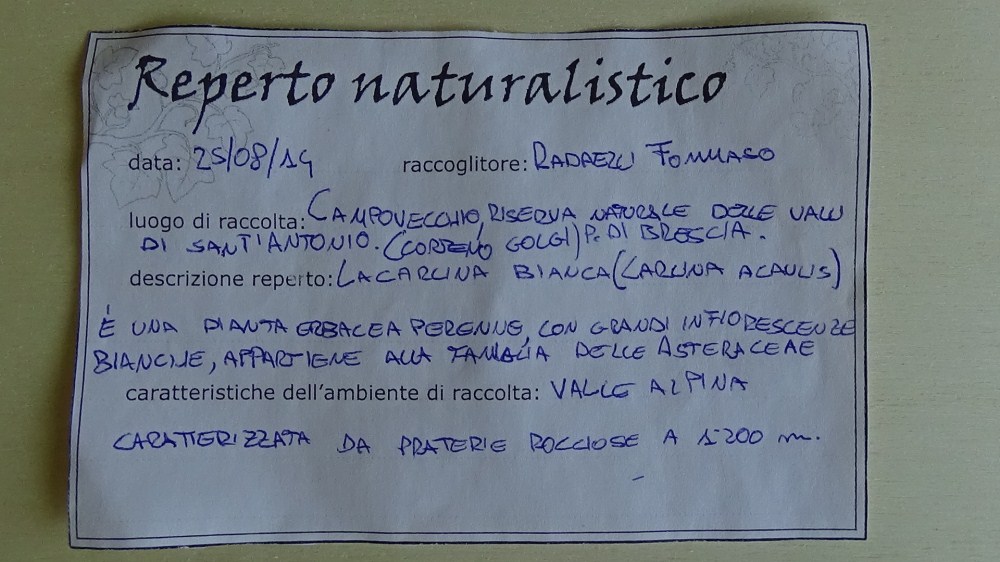 Reperto naturalistico
data: 25/08/14 raccoglitore: RADAELLI TOMMASO
luogo di raccolta: CAMPOVECCHIO, RISERVA NATURALE DELLE VALLI
DI SANT'ANTONIO. (CORTENO GOLGI) P. DI BRESCIA.
descrizione reperto: LA CARLINA BIANCA (CARLINA ACAULIS)
È UNA PIANTA ERBACEA PERENNE, CON GRANDI INFIORESCENZE
BIANCHE, APPARTIENE ALLA FAMIGLIA DELLE ASTERACEAE
caratteristiche dell'ambiente di raccolta: VALLE ALPINA
CARATTERIZZATA DA PRATERIE ROCCIOSE A 1200 m.